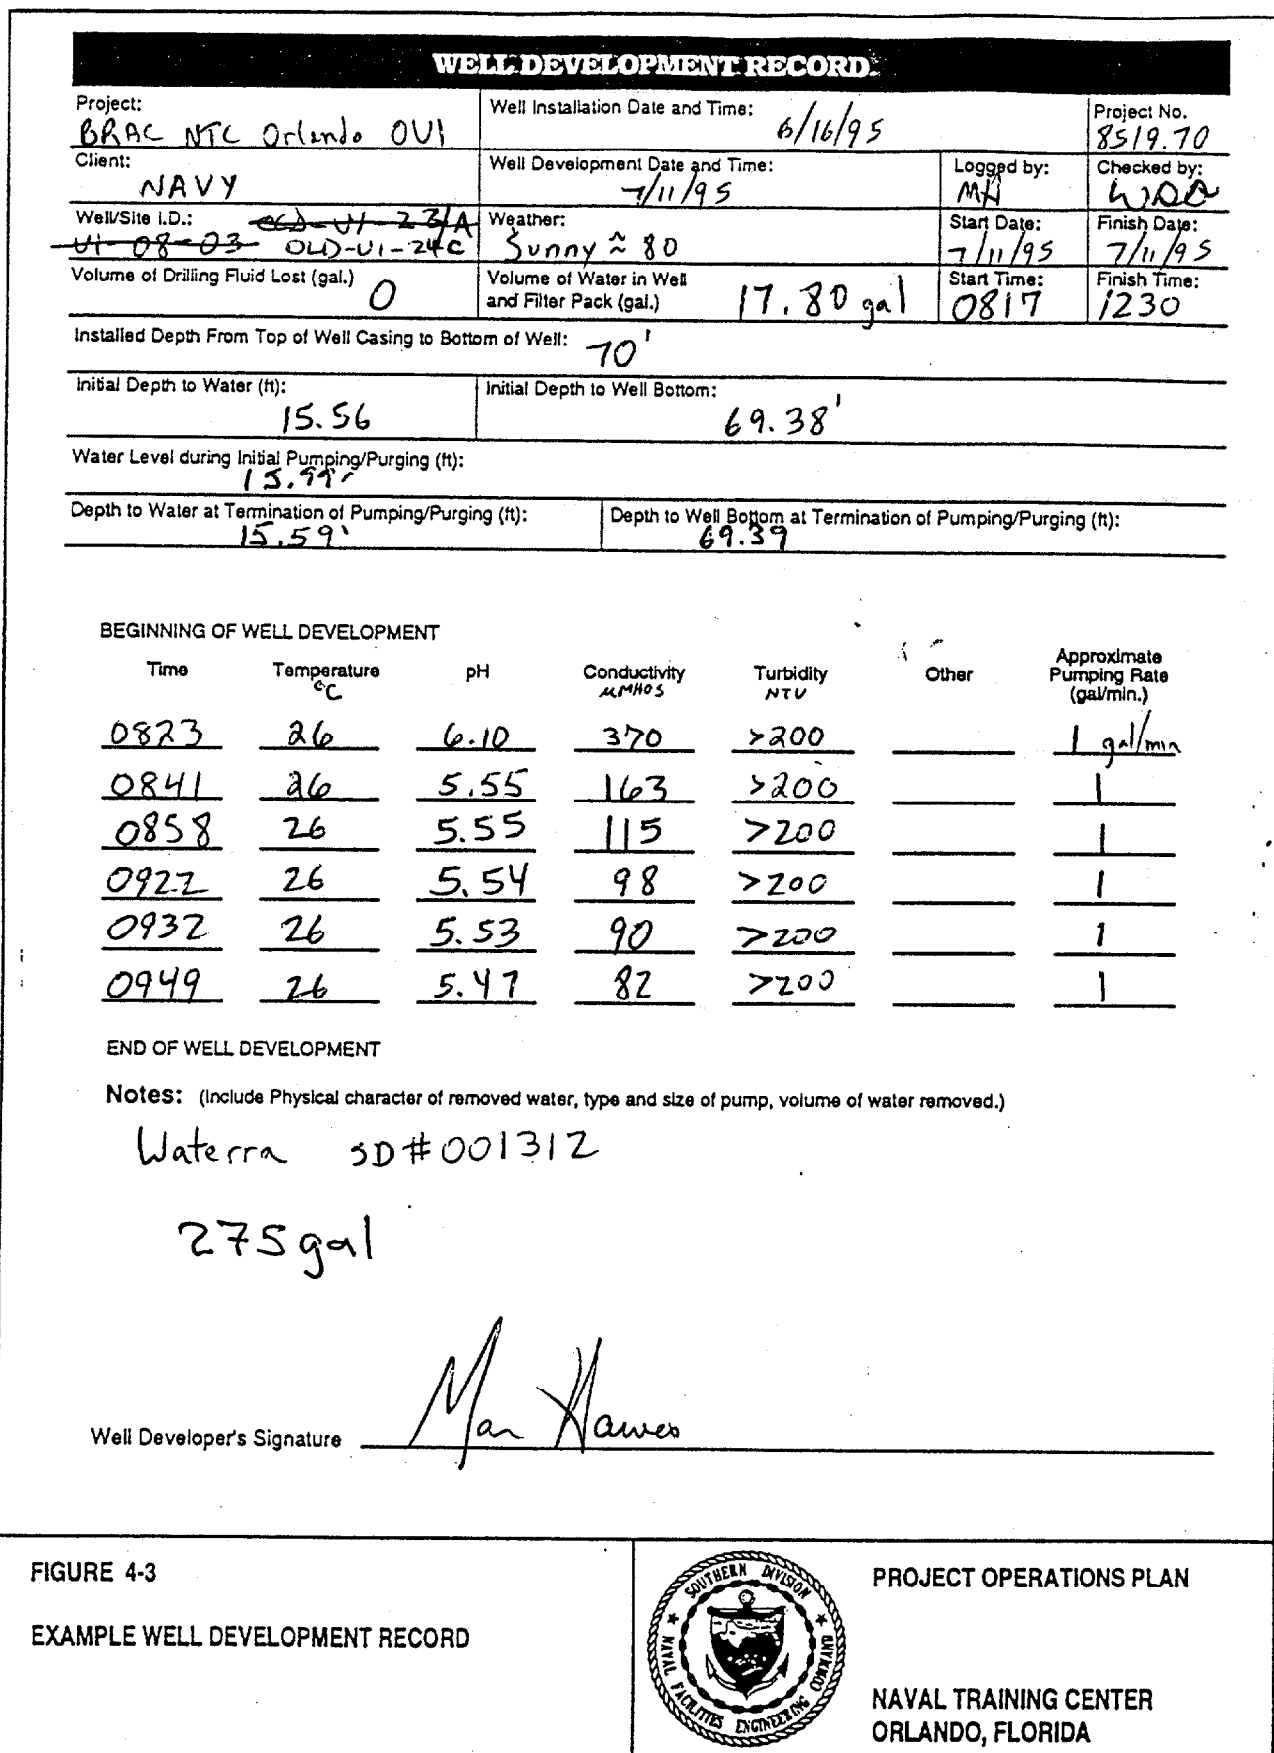 WELL DEVELOPMENT RECORD
Project: Well Installation Date and Time: Project No.
BRAC NTC Orlando OU1 6/16/95 8519.70
Client: Well Development Date and Time: Logged by: Checked by:
NAVY 7/11/95 MH
Well/Site I.D.: Weather: Start Date: Finish Date:
U1-08-03 OLD-U1-24C Sunny ≈ 80 7/11/95 7/11/95
Volume of Drilling Fluid Lost (gal.) Volume of Water in Well Start Time: Finish Time:
0 and Filter Pack (gal.) 17.80 gal 0817 1230
Installed Depth From Top of Well Casing to Bottom of Well: 70'
Initial Depth to Water (ft): Initial Depth to Well Bottom:
15.56 69.38'
Water Level during Initial Pumping/Purging (ft):
Depth to Water at Termination of Pumping/Purging (ft): Depth to Well Bottom at Termination of Pumping/Purging (ft):
15.59' 69.39
BEGINNING OF WELL DEVELOPMENT
Time Temperature °C pH Conductivity µMHOS Turbidity NTU Other Approximate Pumping Rate (gal/min.)
0823 26 6.10 370 >200 1 gal/min
0841 26 5.55 163 >200 1
0858 26 5.55 115 >200 1
0922 26 5.54 98 >200 1
0932 26 5.53 90 >200 1
0949 26 5.47 82 >200 1
END OF WELL DEVELOPMENT
Notes: (Include Physical character of removed water, type and size of pump, volume of water removed.)
Waterra SD#001312
275 gal
Well Developer's Signature Hawes
FIGURE 4-3
EXAMPLE WELL DEVELOPMENT RECORD
SOUTHERN DIVISION
NAVAL FACILITIES ENGINEERING COMMAND
PROJECT OPERATIONS PLAN
NAVAL TRAINING CENTER
ORLANDO, FLORIDA